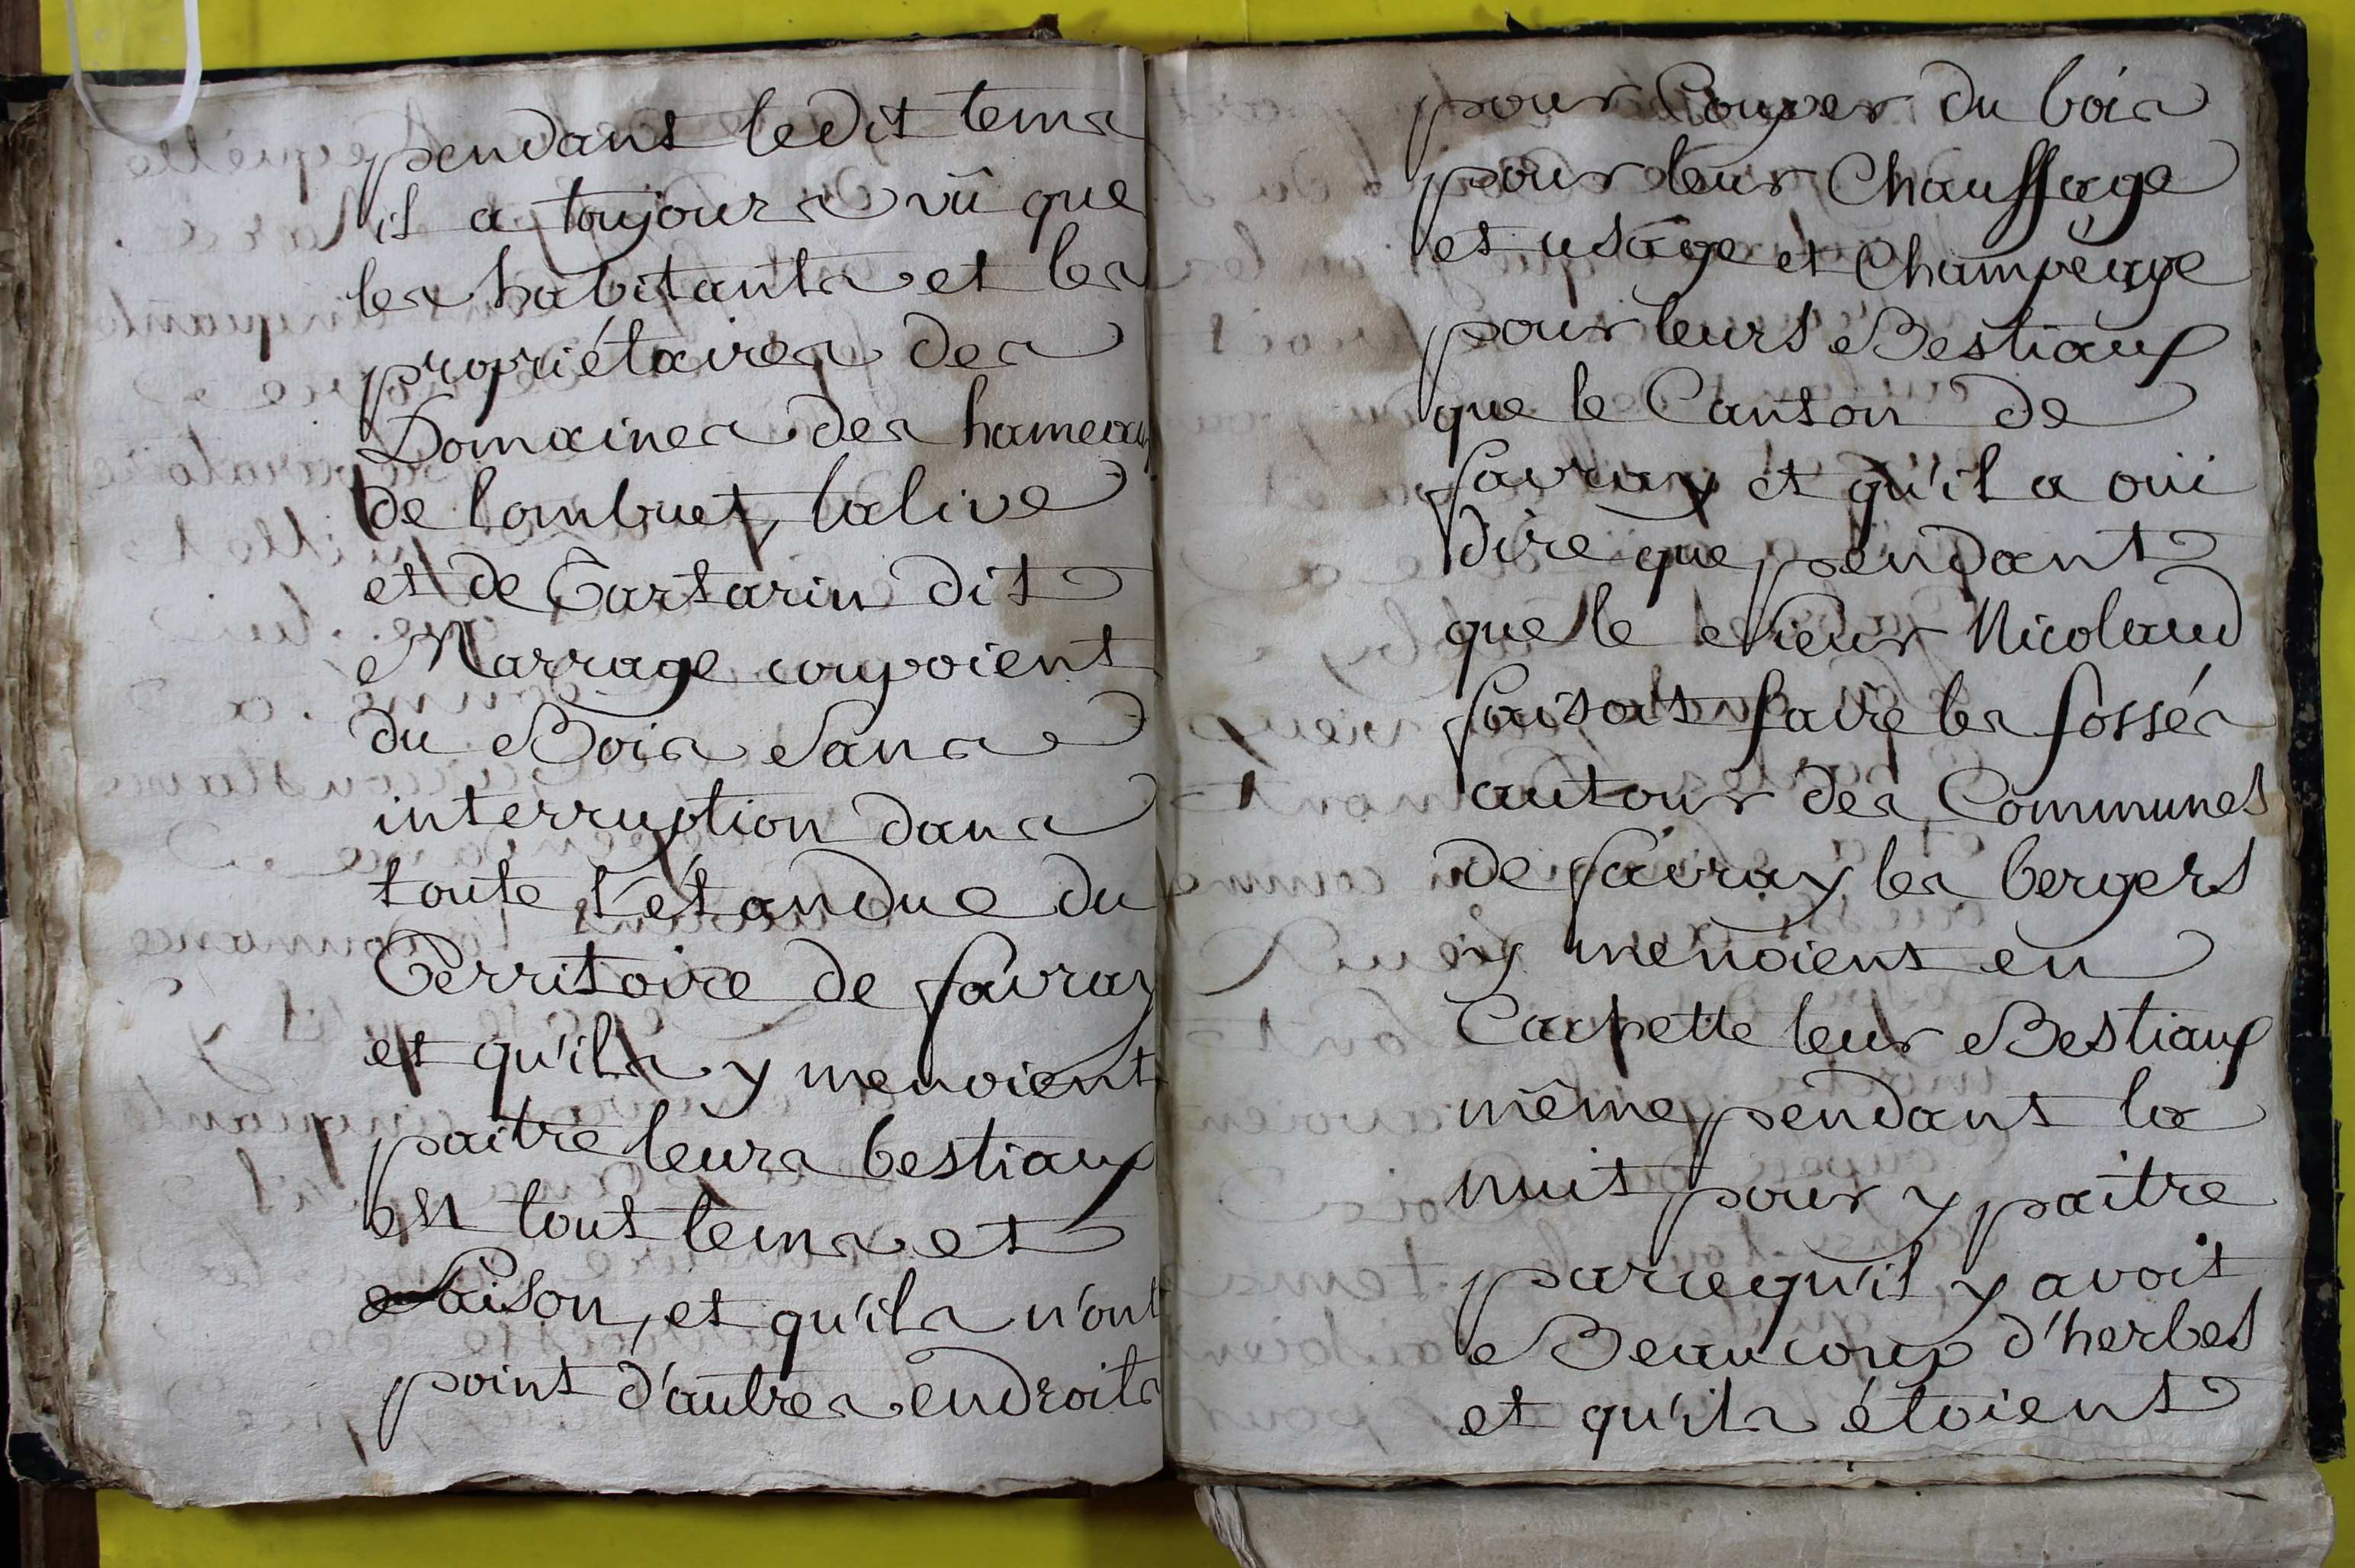 pendant ledit tems
il a toujours vû que
les habitants et les
propriétaires des
Domaines des hameaux
de Lombuet, Lalive
et de Tartarin dit
Marrage coupoient
du Bois sans
interruption dans
toute l'étandue du
Territoire de favray
et qu'ils y menoient
paitre leurs bestiaux
en tout tems et
saison, et qu'ils n'ont
point d'autres endroits
pour Couper du bois
pour leur Chauffage
et usage et Champéage
pour leurs Bestiaux
que le Canton de
favray et qu'il a oui
dire que pendant
que le sieur Nicolaud
faisoit faire les fossés
autour des Communes
de favray les bergers
y menoient en
Cachette leur Bestiaux
même pendant la
nuit pour y paître
parcequ'il y avoit
Beaucoup d'herbes
et qu'ils étoient